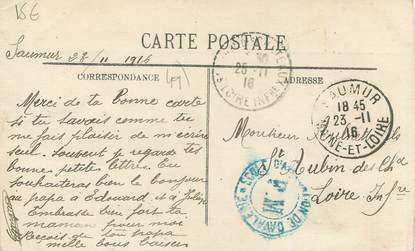 15€
Saumur 23/11 1916
CARTE POSTALE
CORRESPONDANCE
ADRESSE
(49)
25-11
16
LOIRE INFRE
SAUMUR
18 45
23-11
16
MAINE-ET-LOIRE
Merci de ta bonne carte
si tu savais comme tu
me fais plaisir de m'écrire
seul. Souvent je regarde tes
bonnes petites lettres. Tu
souhaiteras bien le bonjour
au papa à Edouard, et à
Embrasse bien fort ta
maman pour moi
Reçois de ton papa
mille bons baisers
Monsieur
St Aubin des Chx
Loire Infre
DE CAVALERIE